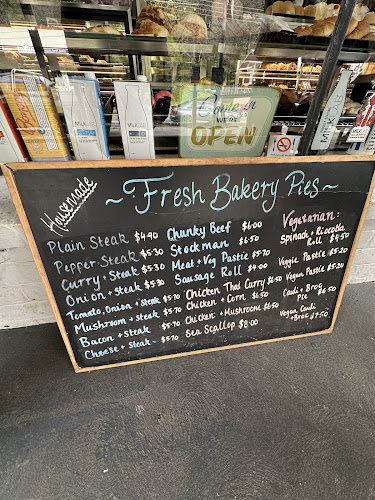 Come in
WE'RE
OPEN
MILK
MILKLAB
Housemade
~Fresh Bakery Pies~
Plain Steak $4.90
Pepper Steak $5.30
Curry + Steak $5.30
Onion + Steak $5.30
Tomato, Onion + Steak $5.70
Mushroom + Steak $5.70
Bacon + Steak $5.70
Cheese + Steak - $5.70
Chunky Beef $6.00
Stockman $6.50
Meat + Veg Pastie $5.20
Sausage Roll $4.00
Chicken Thai Curry $6.50
Chicken + Corn $6.50
Chicken + Mushroom $6.50
Sea Scallop $8.00
Vegetarian:
Spinach + Riccotta
Roll $4.50
Veggie Pastie $5.20
Vegan Pastie $5.20
Cauli + Broc $6.50
Pie
Vegan Cauli
+ Broc $7.50